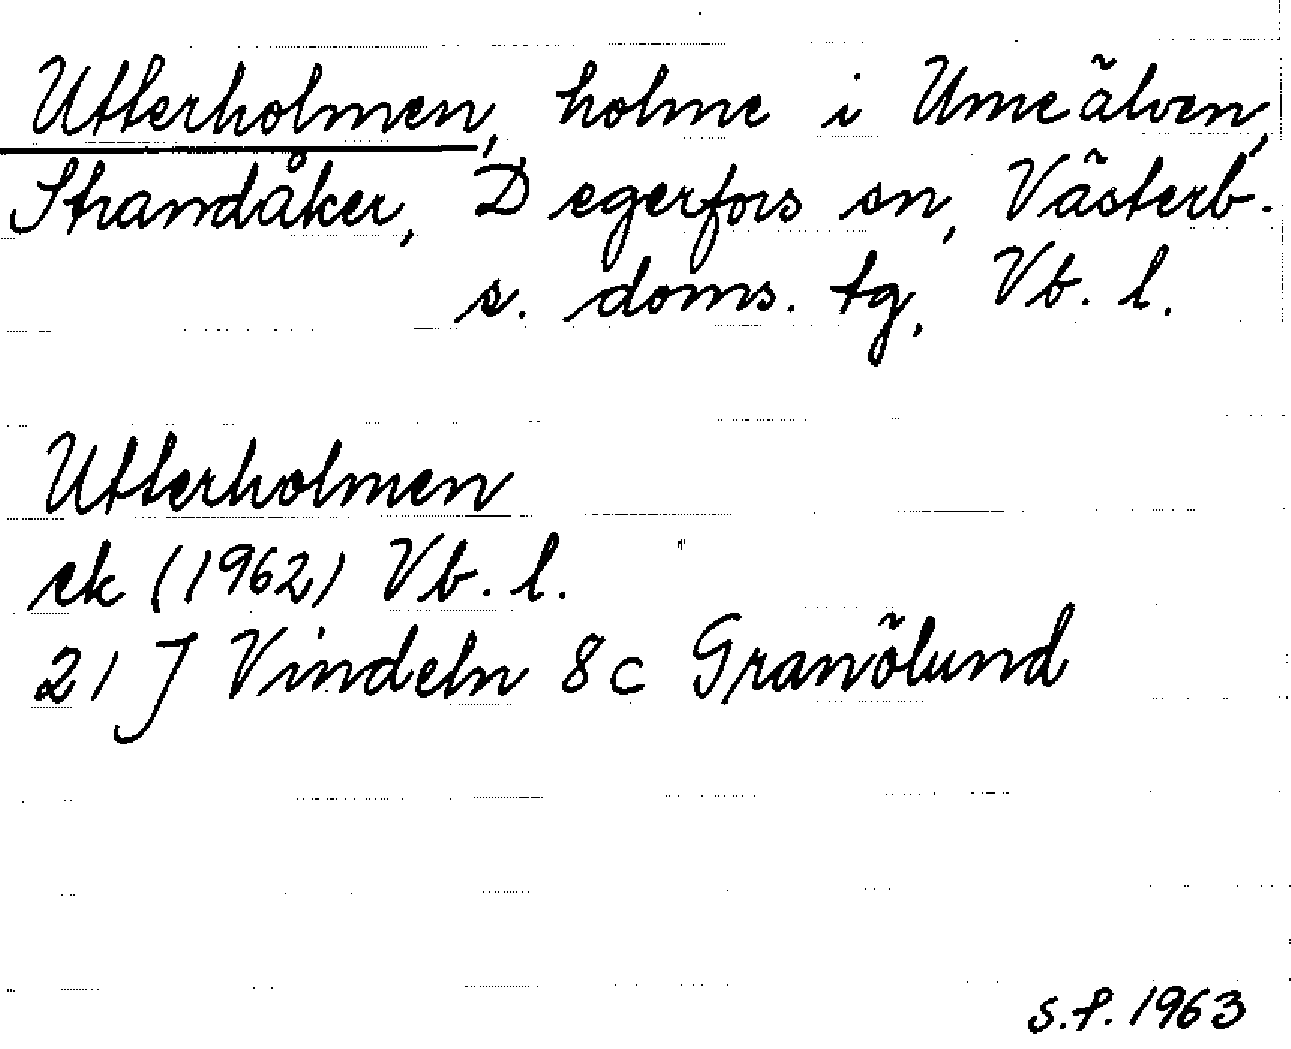 Utterholmen, holme i Umeälven,
Strandåker, Degerfors sn, Västerb.
s. doms. tg, Vb. l.
Utterholmen
ek (1962) Vb. l.
21 J Vindeln 8c Granölund
s.f. 1963